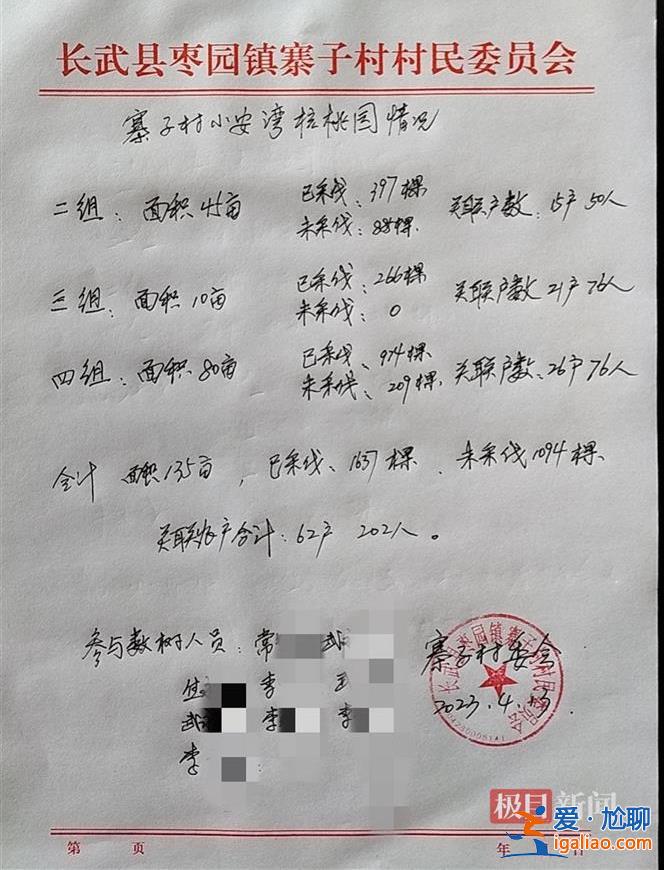 长武县枣园镇寨子村村民委员会
寨子村小安湾核桃园情况
二组：面积45亩 已采伐：397棵 关联户数：15户50人
未采伐：88棵
三组：面积10亩 已采伐：266棵 关联户数21户76人
未采伐：0
四组：面积80亩 已采伐：974棵 关联户数：26户76人
未采伐：209棵
合计 面积135亩，已采伐：1637棵．未采伐1094棵
关联农户合计：62户 202人。
参与数树人员：常 武
李 王
武 李 李
李
寨子村委会
2023.4.13
极目新闻
爱·尬聊
igaliao.com
第 页 年 日